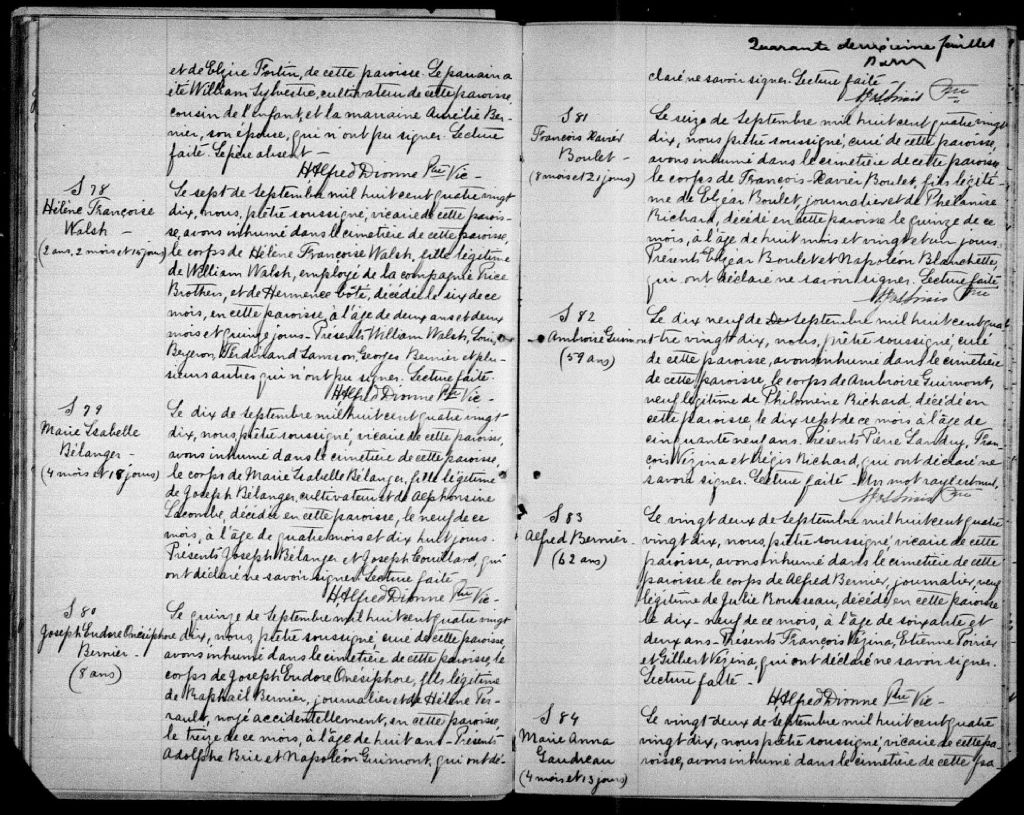 et de Elzire Fortin, de cette paroisse. Le parrain a
été William Sylvestre, cultivateur de cette paroisse,
cousin de l'Enfant, et la marraine Aurélie Ber-
nier, son épouse, qui n'ont pu signer. Lecture
faite. Le père absent —
HAlfred Dionne Ptre Vic —
S 78
Hélène Françoise
Walsh —
(2 ans, 2 mois et 15 jours)
Le sept de septembre mil huit cent quatre vingt
dix, nous, prêtre soussigné, vicaire de cette parois-
se, avons inhumé dans le cimetière de cette paroisse,
le corps de Hélène Françoise Walsh, fille légitime
de William Walsh, employé de la compagnie Price
Brothers, et de Hermence Côté, décédée le six de ce
mois, en cette paroisse, à l'âge de deux ans et deux
mois et quinze jours - Présents William Walsh, Louis
Ferdinand Samson, Georges Bernier et plu-
sieurs autres qui n'ont pu signer. Lecture faite.
HAlfred Dionne Ptre Vic —
S 79
Marie Isabelle
Bélanger -
(4 mois et 18 jours)
Le dix de septembre mil huit cent quatre vingt
dix, nous prêtre soussigné, vicaire de cette paroisse,
avons inhumé dans le cimetière de cette paroisse,
le corps de Marie Isabelle Bélanger, fille légitime
de Joseph Bélanger, cultivateur et de Alphonsine
Lacombe, décédée en cette paroisse, le neuf de ce
mois, à l'âge de quatre mois et dix huit jours.
Présents Joseph Bélanger et Joseph Couillard, qui
ont déclaré ne savoir signer. Lecture faite
HAlfred Dionne Ptre Vic -
S 80
Joseph Eudore Onésiphore
Bernier -
(8 ans)
Le quinze de Septembre mil huit cent quatre vingt
dix, nous, prêtre soussigné curé de cette paroisse
avons inhumé dans le cimetière de cette paroisse, le
corps de Joseph Eudore Onésiphore, fils légitime
de Raphaël Bernier, journalier et de Hélène Per-
rault, noyé accidentellement, en cette paroisse,
le treize de ce mois, à l'âge de huit ans - Présents
Adolphe Brie et Napoléon Guimont, qui ont dé-
Quarante deuxième feuillet
claré ne savoir signer. Lecture faite
Ptre
S 81
François Xavier
Boulet -
(8 mois et 21 jours)
Le seize de Septembre mil huit cent quatre vingt
dix, nous prêtre soussigné, curé de cette paroisse,
avons inhumé dans le cimetière de cette paroisse
le corps de François-Xavier Boulet, fils légiti-
me de Elzéar Boulet, journalier et de Phelanise
Richard, décédé en cette paroisse le quinze de ce
mois, à l'âge de huit mois et vingt et un jours.
Présents Elzéar Boulet et Napoléon Blanchette,
qui ont déclaré ne savoir signer. Lecture faite
Ptre
S 82
Ambroise Guimont
(59 ans)
Le dix neuf de De Septembre mil huit cent qua-
tre vingt dix, nous, prêtre soussigné, curé
de cette paroisse, avons inhumé dans le cimetière
de cette paroisse, le corps de Ambroise Guimont,
veuf légitime de Philomène Richard décédé en
cette paroisse, le dix sept de ce mois à l'âge de
cinquante neuf ans. Présents Pierre Landry, Fran-
çois Vézina et Régis Richard, qui ont déclaré ne
savoir signer. Lecture faite - Un mot rayé est nul,
Ptre
S 83
Alfred Bernier -
(62 ans)
Le vingt deux de Septembre mil huit cent quatre
vingt dix, nous, prêtre soussigné, vicaire de cette
paroisse, avons inhumé dans le cimetière de cette
paroisse le corps de Alfred Bernier, journalier, veuf
légitime de Julie Rousseau, décédé en cette paroisse
le dix-neuf de ce mois, à l'âge de soixante et
deux ans - Présents François Vézina, Etienne Poirier
et Gilbert Vézina, qui ont déclaré ne savoir signer.
Lecture faite —
HAlfred Dionne Ptre Vic —
S 84
Marie Anna
Gaudreau
(4 mois et 13 jours)
Le vingt-deux de septembre mil huit cent quatre
vingt dix, nous prêtre soussigné, vicaire de cette pa-
roisse, avons inhumé dans le cimetière de cette pa-